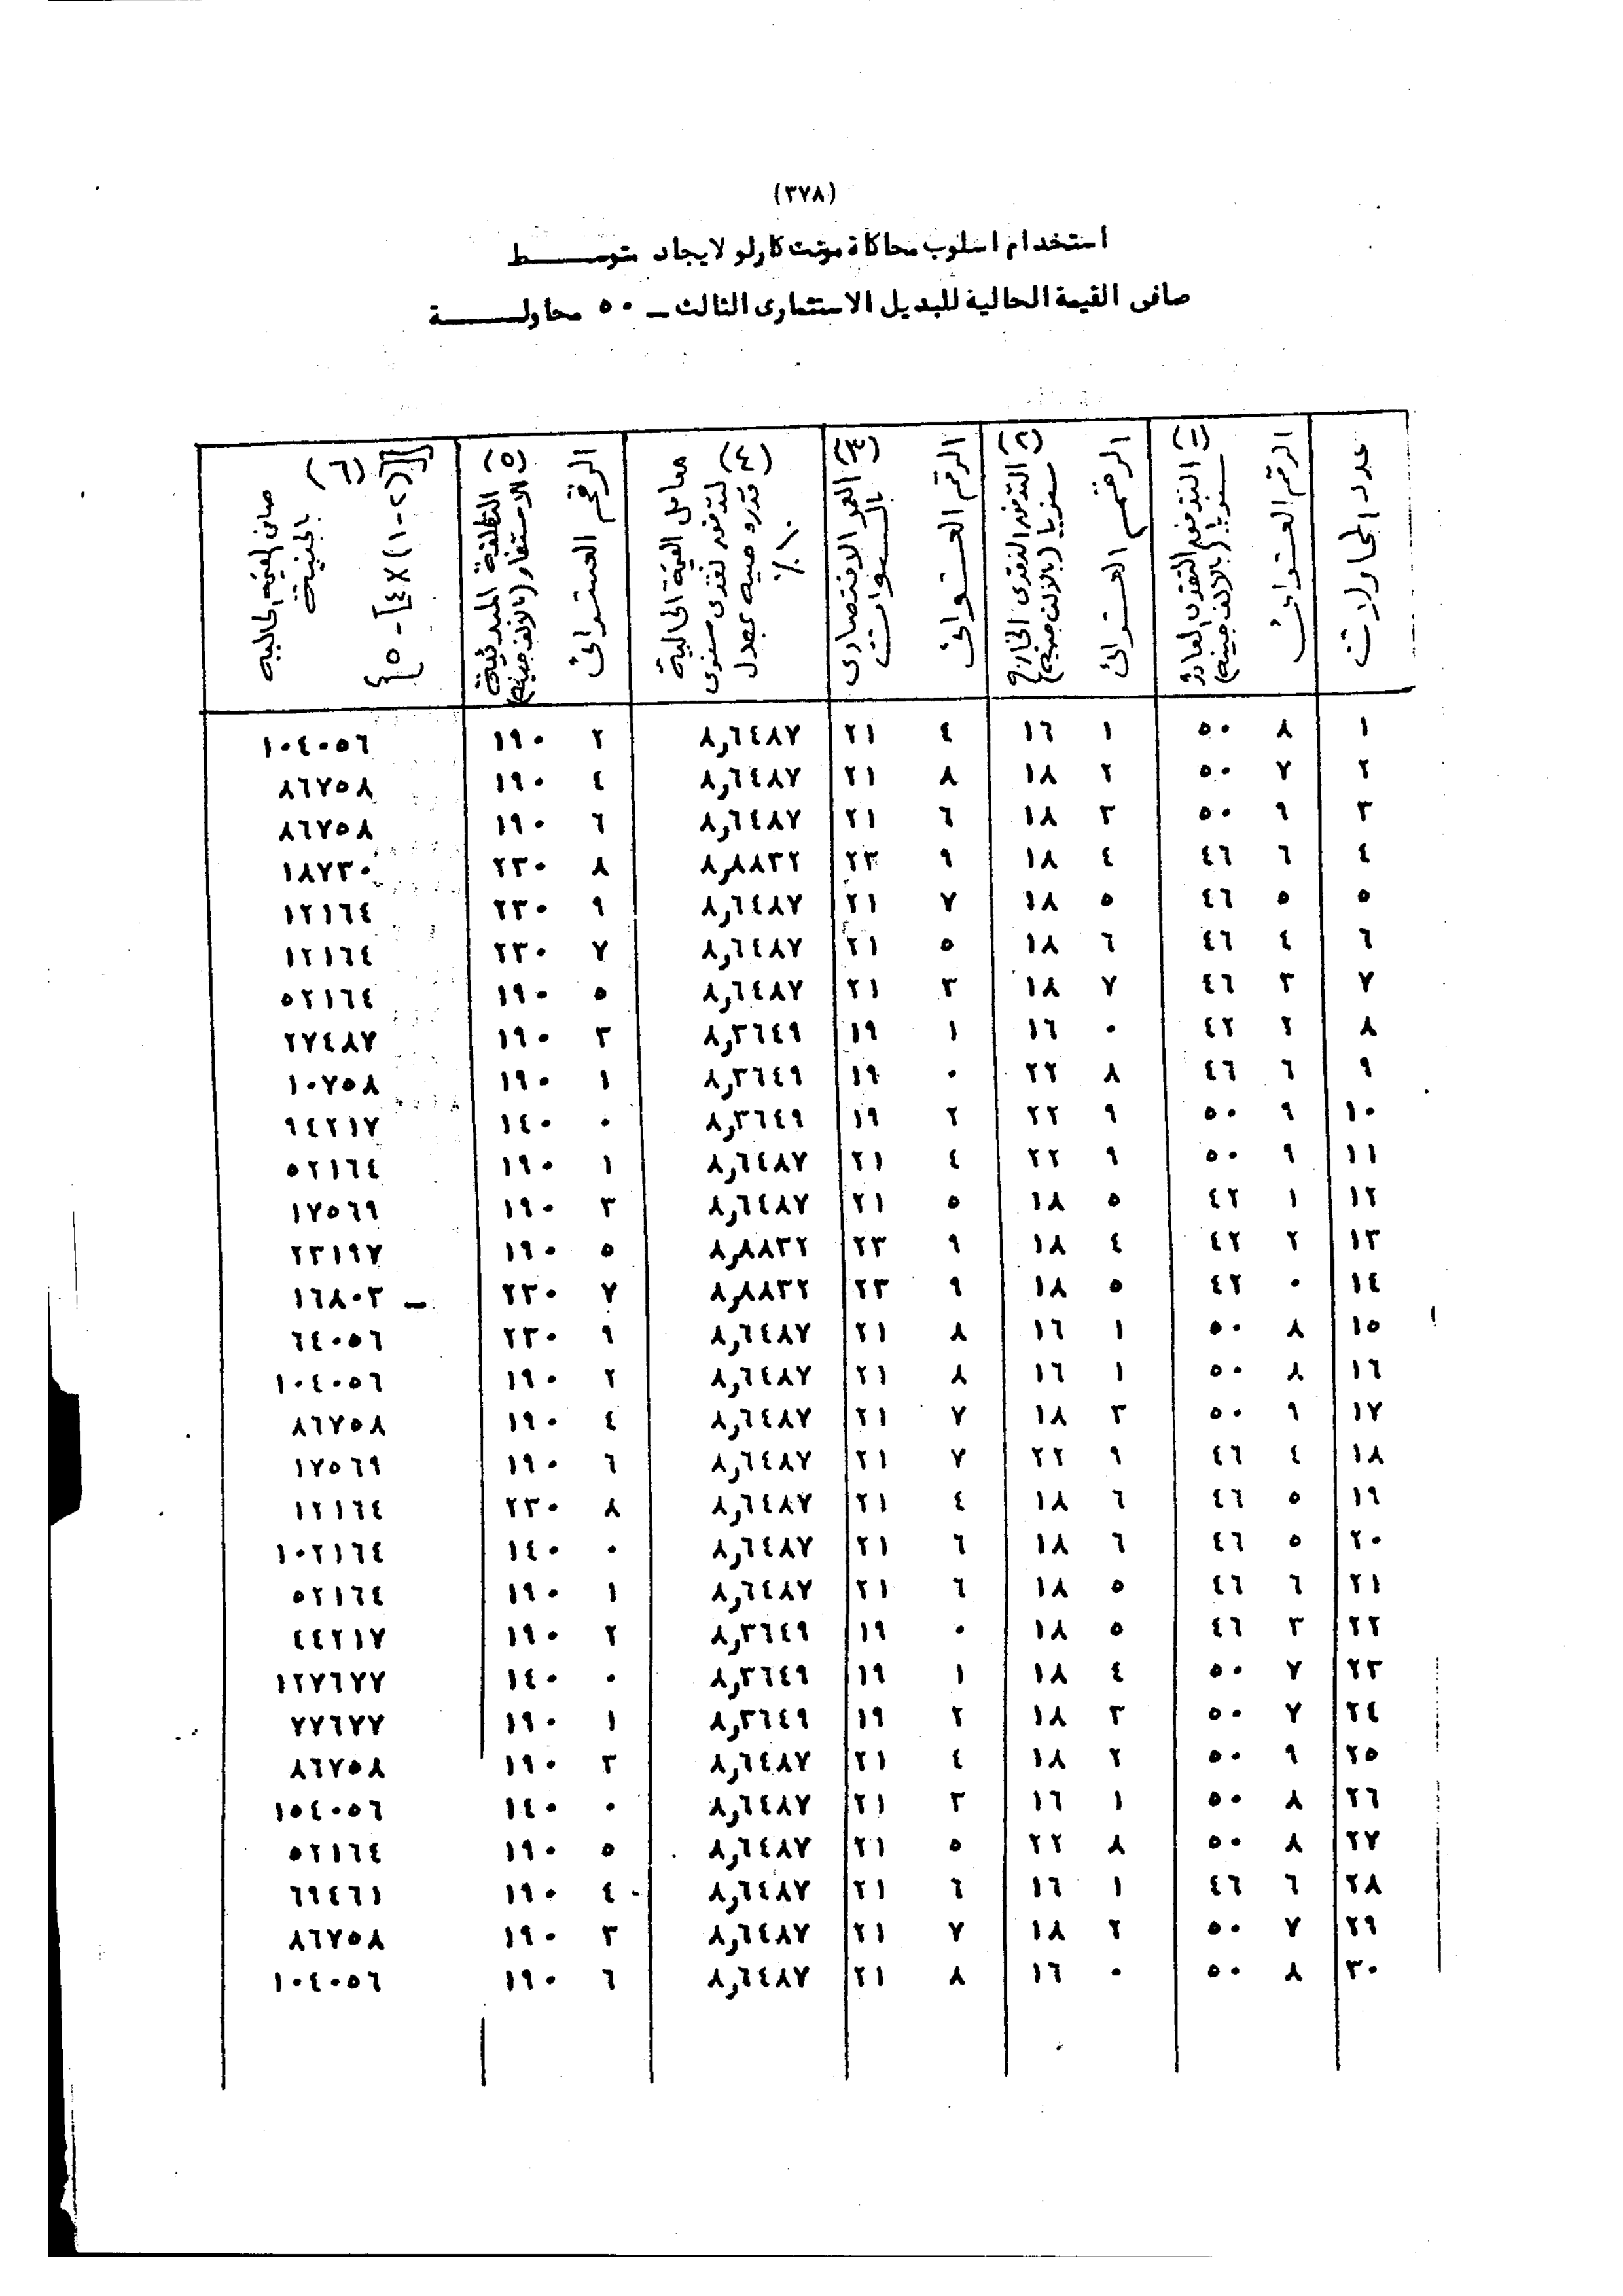 (٣٧٨)
استخدام اسلوب محاكاة مونت كارلو لايجاد متوسط
صافى القيمة الحالية للبديل الاستثمارى الثالث ــ ٥٠ محاولة
عدد المحاولات | الرقم العشوائى | (١) التدفق النقدى العادى سنويا (بالالف جنيه) | الرقم العشوائى | (٢) التدفق النقدى الخارج سنويا (بالالف جنيه) | الرقم العشوائى | (٣) العمر الاقتصادى بالسنوات | (٤) معامل القيمة الحالية لتدفق نقدى سنوى قدره جنيه بمعدل ١٠٪ | الرقم العشوائى | (٥) التكلفة المبدئية للاستثمار (بالالف جنيه) | (٦) صافى القيمة الحالية بالجنية {[(١-٢)×٤]-٥}
١ ٨ ٥٠ ١ ١٦ ٤ ٢١ ٨,٦٤٨٧ ٢ ١٩٠ ١٠٤٠٥٦
٢ ٧ ٥٠ ٢ ١٨ ٨ ٢١ ٨,٦٤٨٧ ٤ ١٩٠ ٨٦٧٥٨
٣ ٩ ٥٠ ٣ ١٨ ٦ ٢١ ٨,٦٤٨٧ ٦ ١٩٠ ٨٦٧٥٨
٤ ٦ ٤٦ ٤ ١٨ ٩ ٢٣ ٨,٨٨٣٢ ٨ ٢٣٠ ١٨٧٣٠
٥ ٥ ٤٦ ٥ ١٨ ٧ ٢١ ٨,٦٤٨٧ ٩ ٢٣٠ ١٢١٦٤
٦ ٤ ٤٦ ٦ ١٨ ٥ ٢١ ٨,٦٤٨٧ ٧ ٢٣٠ ١٢١٦٤
٧ ٣ ٤٦ ٧ ١٨ ٣ ٢١ ٨,٦٤٨٧ ٥ ١٩٠ ٥٢١٦٤
٨ ٢ ٤٢ ٠ ١٦ ١ ١٩ ٨,٣٦٤٩ ٣ ١٩٠ ٢٧٤٨٧
٩ ٦ ٤٦ ٨ ٢٢ ٠ ١٩ ٨,٣٦٤٩ ١ ١٩٠ ١٠٧٥٨
١٠ ٩ ٥٠ ٩ ٢٢ ٢ ١٩ ٨,٣٦٤٩ ٠ ١٤٠ ٩٤٢١٧
١١ ٩ ٥٠ ٩ ٢٢ ٤ ٢١ ٨,٦٤٨٧ ١ ١٩٠ ٥٢١٦٤
١٢ ١ ٤٢ ٥ ١٨ ٥ ٢١ ٨,٦٤٨٧ ٣ ١٩٠ ١٧٥٦٩
١٣ ٢ ٤٢ ٤ ١٨ ٩ ٢٣ ٨,٨٨٣٢ ٥ ١٩٠ ٢٣١٩٧
١٤ ٠ ٤٢ ٥ ١٨ ٩ ٢٣ ٨,٨٨٣٢ ٧ ٢٣٠ ــ ١٦٨٠٣
١٥ ٨ ٥٠ ١ ١٦ ٨ ٢١ ٨,٦٤٨٧ ٩ ٢٣٠ ٦٤٠٥٦
١٦ ٨ ٥٠ ١ ١٦ ٨ ٢١ ٨,٦٤٨٧ ٢ ١٩٠ ١٠٤٠٥٦
١٧ ٩ ٥٠ ٣ ١٨ ٧ ٢١ ٨,٦٤٨٧ ٤ ١٩٠ ٨٦٧٥٨
١٨ ٤ ٤٦ ٩ ٢٢ ٧ ٢١ ٨,٦٤٨٧ ٦ ١٩٠ ١٧٥٦٩
١٩ ٥ ٤٦ ٦ ١٨ ٤ ٢١ ٨,٦٤٨٧ ٨ ٢٣٠ ١٢١٦٤
٢٠ ٥ ٤٦ ٦ ١٨ ٦ ٢١ ٨,٦٤٨٧ ٠ ١٤٠ ١٠٢١٦٤
٢١ ٦ ٤٦ ٥ ١٨ ٦ ٢١ ٨,٦٤٨٧ ١ ١٩٠ ٥٢١٦٤
٢٢ ٣ ٤٦ ٥ ١٨ ٠ ١٩ ٨,٣٦٤٩ ٢ ١٩٠ ٤٤٢١٧
٢٣ ٧ ٥٠ ٤ ١٨ ١ ١٩ ٨,٣٦٤٩ ٠ ١٤٠ ١٢٧٦٧٧
٢٤ ٧ ٥٠ ٣ ١٨ ٢ ١٩ ٨,٣٦٤٩ ١ ١٩٠ ٧٧٦٧٧
٢٥ ٩ ٥٠ ٢ ١٨ ٤ ٢١ ٨,٦٤٨٧ ٣ ١٩٠ ٨٦٧٥٨
٢٦ ٨ ٥٠ ١ ١٦ ٣ ٢١ ٨,٦٤٨٧ ٠ ١٤٠ ١٥٤٠٥٦
٢٧ ٨ ٥٠ ٨ ٢٢ ٥ ٢١ ٨,٦٤٨٧ ٥ ١٩٠ ٥٢١٦٤
٢٨ ٦ ٤٦ ١ ١٦ ٦ ٢١ ٨,٦٤٨٧ ٤ ١٩٠ ٦٩٤٦١
٢٩ ٧ ٥٠ ٢ ١٨ ٧ ٢١ ٨,٦٤٨٧ ٣ ١٩٠ ٨٦٧٥٨
٣٠ ٨ ٥٠ ٠ ١٦ ٨ ٢١ ٨,٦٤٨٧ ٦ ١٩٠ ١٠٤٠٥٦